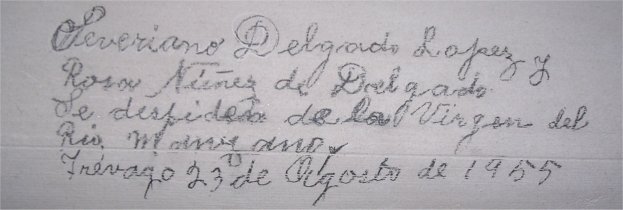 Severiano Delgado Lopez y
Rosa Núñez de Delgado
Se despiden de la Virgen del
Rio Manzano
Trévago 23 de Agosto de 1955